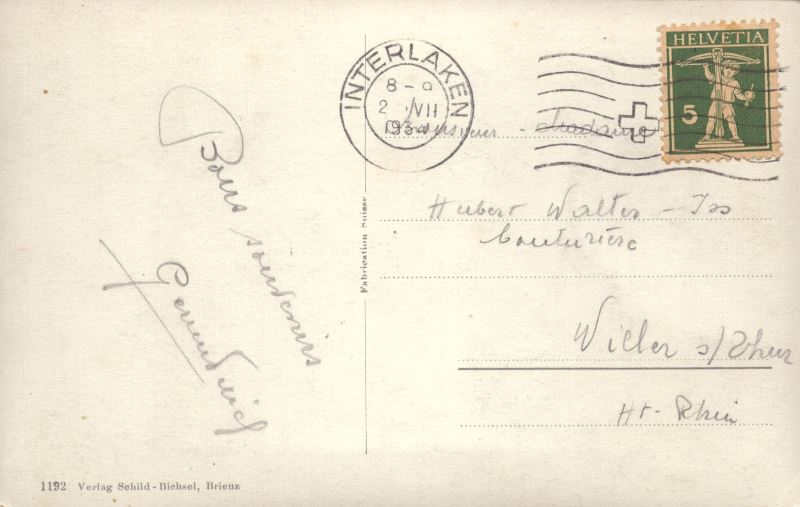 INTERLAKEN
8-9
2 VII
1934
HELVETIA
5
Monsieur - Madame
Hubert Walter - Iss
Couturière
Willer s/Thur
Ht-Rhin
Bons souvenirs
Fabrication Suisse
1192 Verlag Schild-Bichsel, Brienz